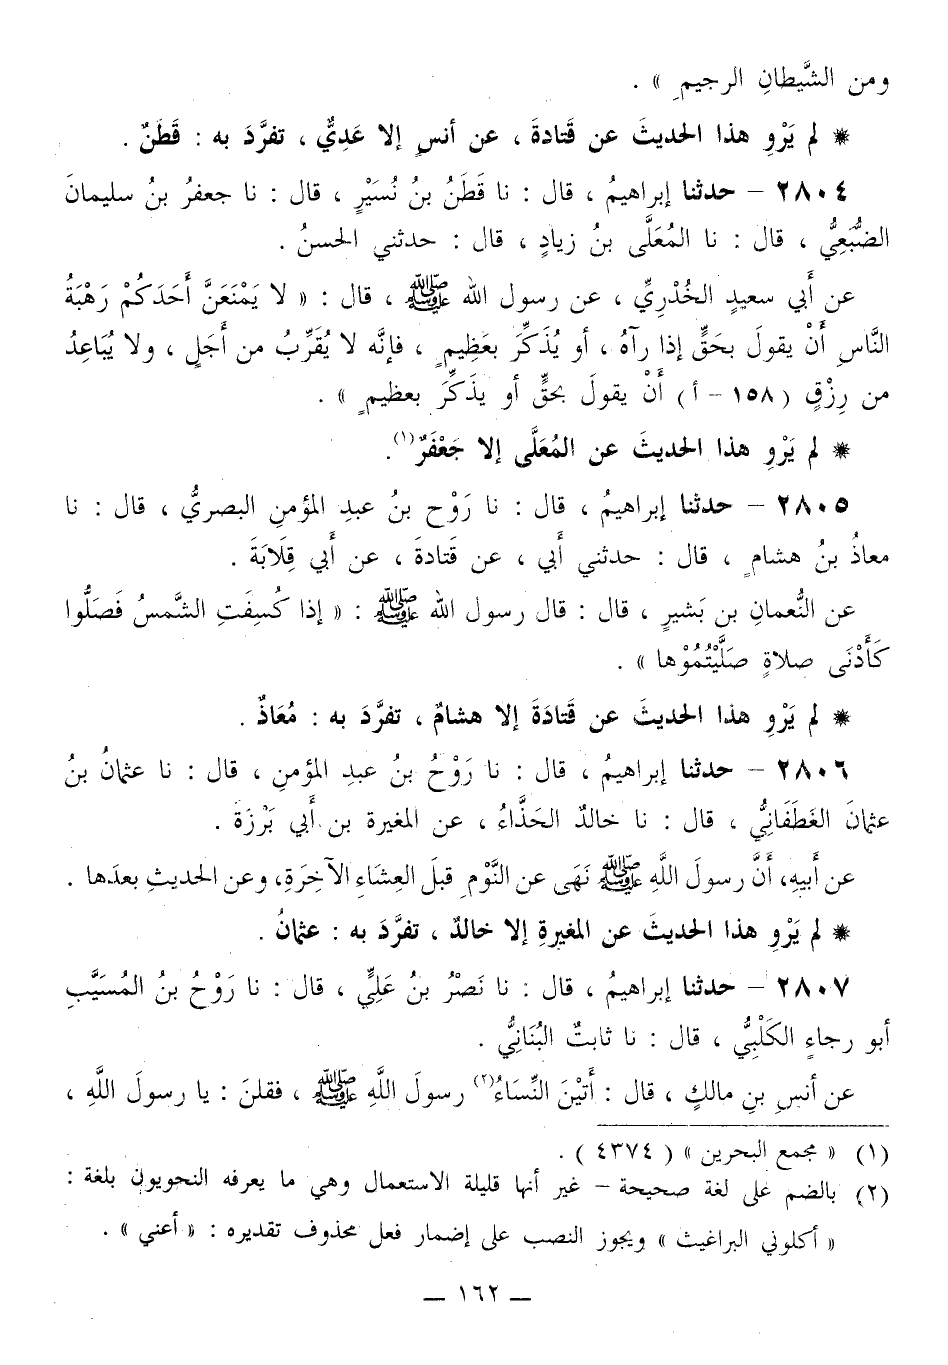 ومن الشَّيطانِ الرجيمِ » .
* لم يَرْوِ هذا الحديثَ عن قَتادةَ ، عن أنسٍ إلا عَدِيٌّ ، تفرَّدَ به : قَطَنٌ .
٢٨٠٤ - حدثنا إبراهيمُ ، قال : نا قَطَنُ بنُ نُسَيْرٍ ، قال : نا جعفرُ بنُ سليمانَ
الضُّبَعِيُّ ، قال : نا المُعَلَّى بنُ زيادٍ ، قال : حدثني الحسنُ .
عن أَبي سعيدٍ الخُدْرِيِّ ، عن رسول الله ﷺ ، قال : « لا يَمْنَعَنَّ أَحَدَكُمْ رَهْبَةُ
النَّاسِ أَنْ يقولَ بحَقٍّ إذا رآهُ ، أو يُذَكِّرَ بعَظِيمٍ ، فإنَّه لا يُقَرِّبُ من أَجَلٍ ، ولا يُبَاعِدُ
من رِزْقٍ ( ١٥٨ - أ ) أَنْ يقولَ بحقٍّ أو يذَكِّرَ بعظيمٍ » .
* لم يَرْوِ هذا الحديثَ عن المُعَلَّى إلا جَعْفَرٌ(١).
٢٨٠٥ - حدثنا إبراهيمُ ، قال : نا رَوْح بنُ عبدِ المؤمنِ البصريُّ ، قال : نا
معاذُ بنُ هشامٍ ، قال : حدثني أبي ، عن قَتادةَ ، عن أَبي قِلَابَةَ .
عن النُّعمانِ بن بَشيرٍ ، قال : قال رسول الله ﷺ : « إذا كُسِفَتِ الشَّمسُ فَصَلُّوا
كَأَدْنَى صلاةٍ صَلَّيْتُمُوْها » .
* لم يَرْوِ هذا الحديثَ عن قَتادَةَ إلا هشامٌ ، تفرَّدَ به : مُعَاذٌ .
٢٨٠٦ - حدثنا إبراهيمُ ، قال : نا رَوْحُ بنُ عبدِ المؤمنِ ، قال : نا عثمانُ بنُ
عثمانَ الغَطَفَانِيُّ ، قال : نا خالدٌ الحَذَّاءُ ، عن المغيرة بن أَبي بَرْزَةَ .
عن أَبيهِ، أَنَّ رسولَ اللَّهِ ﷺ نَهَى عن النَّوْمِ قبلَ العِشَاءِ الآخِرَةِ، وعن الحديثِ بعدَها .
* لم يَرْوِ هذا الحديثَ عن المغيرةِ إلا خالدٌ ، تفرَّدَ به : عثمانُ .
٢٨٠٧ - حدثنا إبراهيمُ ، قال : نا نَصْرُ بنُ عَلِيٍّ ، قال : نا رَوْحُ بنُ المُسَيَّبِ
أبو رجاءٍ الكَلْبِيُّ ، قال : نا ثابتٌ البُنَانِيُّ .
عن أنسِ بنِ مالكٍ ، قال : أَتَيْنَ النِّسَاءُ(٢) رسولَ اللَّهِ ﷺ ، فقلنَ : يا رسولَ اللَّهِ ،
(١) « مجمع البحرين » ( ٤٣٧٤ ) .
(٢) بالضم على لغة صحيحة - غير أنها قليلة الاستعمال وهي ما يعرفه النحويون بلغة :
« أكلوني البراغيث » ويجوز النصب على إضمار فعل محذوف تقديره : « أعني » .
— ١٦٢ —